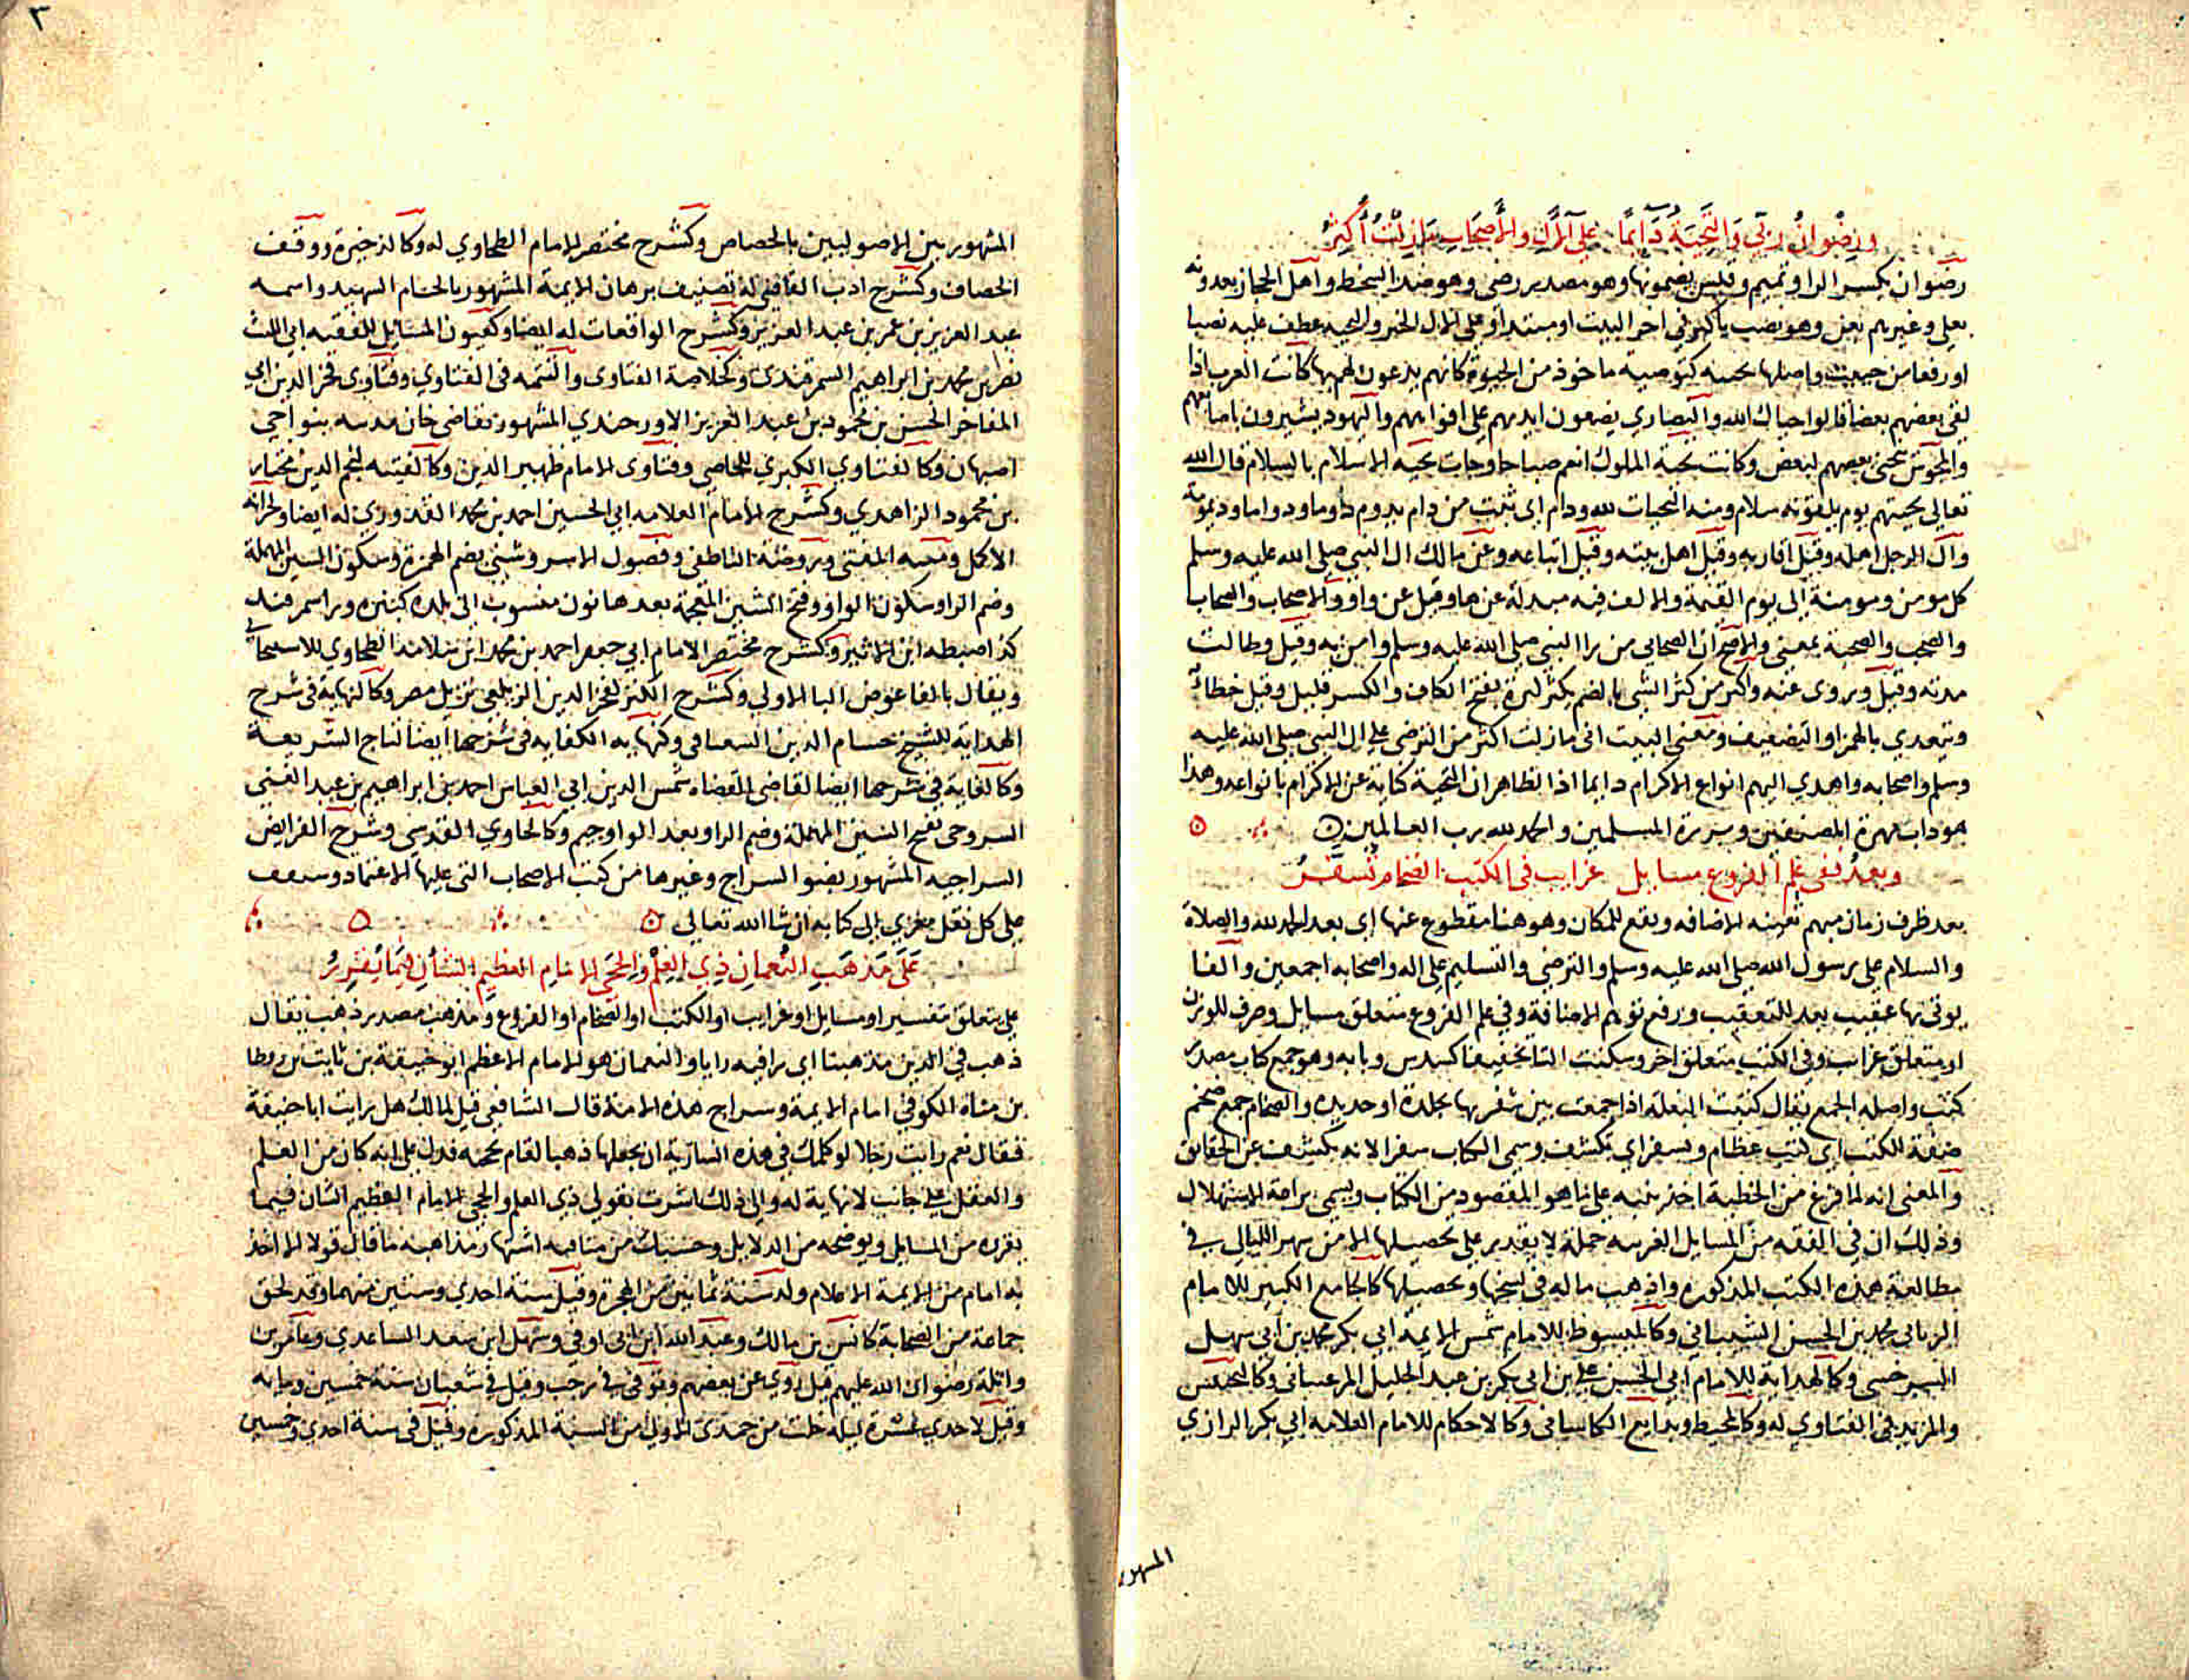 ورضوان ربي والتحية دائما على الآل والأصحاب ما زلت أكثر
رضوان بكسر الرا وتميم وقيس يضمونها وهو مصدر رضى وهو ضد السخط واهل الحجاز يعدونه
بعلى وغيرهم بعن وهو نصب باكثر في اخر البيت او مبتدا وعلى الال الخبر والتحيه عطف عليه نصبا
او رفعا من حييت واصلها تحييه كتوصيه ماخوذ من الحيوة كانهم يدعون لهم بها كانت العرب اذا
لقى بعضهم بعضا قالوا حياك الله والنصاري يضعون ايديهم على افواههم واليهود يشيرون باصابعهم
والمجوس ينحنى بعضهم لبعض وكانت تحية الملوك انعم صباحا وجات تحيه الاسلام بالسلام قال الله
تعالى تحيتهم يوم يلقونه سلام ومنه التحيات لله ودام اى ثبت من دام يدوم دوما ودواما وديمومة
وآل الرجل اهله وقيل اقاربه وقيل اهل بيته وقيل اتباعه وعن مالك ال النبي صلى الله عليه وسلم
كل مومن ومومنة إلى يوم القيمة والالف فيه مبدلة عن ها وقيل عن واو والاصحاب والصحاب
والصحب والصحبة بمعنى والاصح ان الصحابي من راا النبى صلى الله عليه وسلم وامن به وقيل وطالت
مدته وقيل وروى عنه واكثر من كثر الشى بالضم يكثر كثرة بفتح الكاف والكسر قليل وقيل خطاء
ويتعدي بالهمز او التضعيف ومعنى البيت انى مازلت اكثر من الترضى على ال النبى صلى الله عليه
وسلم واصحابه واهدي اليهم انواع الاكرام دايما اذ الظاهر ان التحية كناية عن الاكرام بانواعه وهذا
هو داب مهرة المصنفين وبررة المسلمين والحمد لله رب العالمين
وبعد ففى علم الفروع مسايل غرايب فى الكتب الضخام تسفر
بعد ظرف زمان مبهم تفهمه الاضافه ويقع للمكان وهو هنا مقطوع عنها اى بعد الحمد لله والصلاة
والسلام على رسول الله صلى الله عليه وسلم والترضى والتسليم على اله واصحابه اجمعين والفا
يوتى بها عقيب بعد للتعقيب ورفع توهم الاضافة وفى علم الفروع متعلق مسايل وصرف للوزن
او متعلق غرايب وفى الكتب متعلق اخر وسكنت التا تخفيفا كسدس وبابه وهو جمع كتاب مصدر
كتب واصله الجمع يقال كتبت البغله اذا جمعت بين شفريها بجلدة او حديده والضخام جمع ضخم
صفة للكتب اى كتب عظام وتسفر اي تكشف وسمى الكتاب سفرا لانه يكشف عن الحقائق
والمعنى انه لما فرغ من الخطبة اخذ ينبه على ما هو المقصود من الكتاب ويسمى براعة الاستهلال
وذلك ان في الفقه من المسايل الغريبه جملة لا يقدر على تحصيلها الا من سهر الليالى فى
مطالعة هذه الكتب المذكوره واذهب ماله فى نسخها وتحصيلها كالجامع الكبير للامام
الربانى محمد بن الحسن الشيبانى وكالمبسوط للامام شمس الايمة ابي بكر محمد بن ابى سهل
السرخسى وكالهداية للامام ابى الحسن على بن ابى بكر بن عبد الجليل المرغينانى وكالتجنيس
والمزيد فى الفتاوي له وكالمحيط وبدايع الكاسانى وكالاحكام للامام العلامه ابي بكر الرازي
المشهور
٣
المشهور بين الاصوليين بالجصاص وكشرح مختصر الامام الطحاوي له وكالذخيرة ووقف
الخصاف وكشرح ادب القاضى له تصنيف برهان الايمة المشهور بالحسام الشهيد واسمه
عبد العزيز بن عمر بن عبد العزيز وكشرح الواقعات له ايضا وكعيون المسايل للفقيه ابى الليث
نصر بن محمد بن ابراهيم السمرقندى وكخلاصة الفتاوى والتتمه فى الفتاوي وفتاوى فخر الدين ابى
المفاخر الحسن بن محمود بن عبد العزيز الاورجندي المشهور بقاضى خان مدينه بنواحى
اصبهان وكالفتاوي الكبري للخاصى وفتاوى الامام ظهير الدين وكالقنيه لنجم الدين مختار
بن محمود الزاهدي وكشرح الامام العلامه ابي الحسين احمد بن محمد القدوري له ايضا وخزانة
الاكمل ومنيه المفتى وروضة الناطفى وفصول الاسروشنى بضم الهمزة وسكون السين المهملة
وضم الرا وسكون الواو وفتح الشين المعجمة بعدها نون منسوب الى بلده كبيره ورا سمرقند
كذا ضبطه ابن الاثير وكشرح مختصر الامام ابي جعفر احمد بن محمد ابن سلامه الطحاوي للاسبيجابى
ويقال بالفا عوض البا الاولى وكشرح الكنز لفخر الدين الزيلعى نزيل مصر وكالنهاية فى شرح
الهداية للشيخ حسام الدين السغناقى وكنهايه الكفايه فى شرحها ايضا لتاج الشريعة
وكالغاية فى شرحها ايضا لقاضى القضاه شمس الدين ابي العباس احمد بن ابراهيم بن عبد الغنى
السروجى بفتح السين المهملة وضم الرا وبعد الواو جيم وكالحاوي القدسى وشرح الفرايض
السراجيه المشهور بضو السراج وغيرها من كتب الاصحاب التى عليها الاعتماد وستقف
على كل نقل معزي إلى كتابه ان شا الله تعالى
على مذهب النعمان ذي العلم والحجى الامام العظيم الشان فيما يقرر
على متعلق بتفسير او مسايل او غرايب او الكتب او الضخام او الفروع ومذهب مصدر ذهب يقال
ذهب فى الدين مذهبا اى راى فيه رايا والنعمان هو الامام الاعظم ابو حنيفة بن ثابت بن زوطا
بن ماه الكوفى امام الايمة وسراج هذه الامة قال الشافعى قيل لمالك هل رايت ابا حنيفة
فقال نعم رايت رجلا لو كلمك في هذه السارية ان يجعلها ذهبا لقام بحجته فدل على انه كان من العلم
والعقل على جانب لا نهاية له والى ذلك اشرت بقولى ذي العلم والحجى الامام العظيم الشان فيما
يقرره من المسايل ويوضحه من الدلايل وحسبك من مناقبه اشتهار مذاهبه ما قال قولا الا اخذ
به امام من الايمة الاعلام ولد سنة ثمانين من الهجرة وقيل سنة احدي وستين منها وقد لحق
جماعة من الصحابة كانس بن مالك وعبد الله ابن ابى اوفى وسهل ابن سعد الساعدي وعامر بن
واثلة رضوان الله عليهم قيل روي عن بعضهم وتوفى فى رجب وقيل فى شعبان سنة خمسين ومايه
وقيل لاحدي عشرة ليله خلت من جمدى الاولى من السنة المذكوره وقيل فى سنة احدي وخمسين